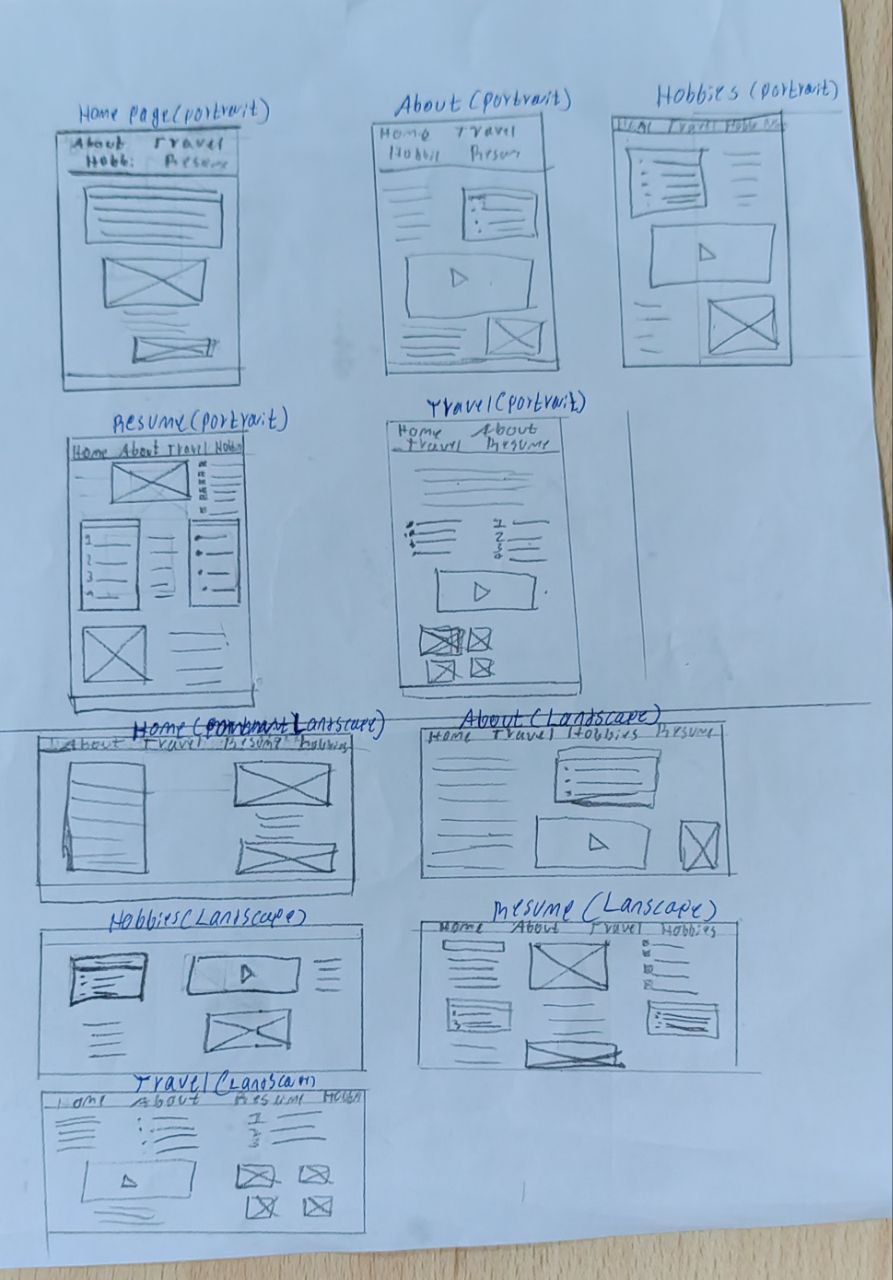 Home page(portrait)
About Travel
Hobbi Resume
About (portrait)
Home Travel
Hobbil Resum
Hobbies (portrait)
Travel
Resume(portrait)
Home About Travel
1
2
3
Travel(portrait)
Home About
Travel Resume
1
2
3
4
Home ( Landscape)
About Travel Resume Hobbies
About (Landscape)
Home Travel Hobbies Resume
Hobbies(Landscape)
Resume (Lanscape)
Home About Travel Hobbies
Home About Resume
1
2
3